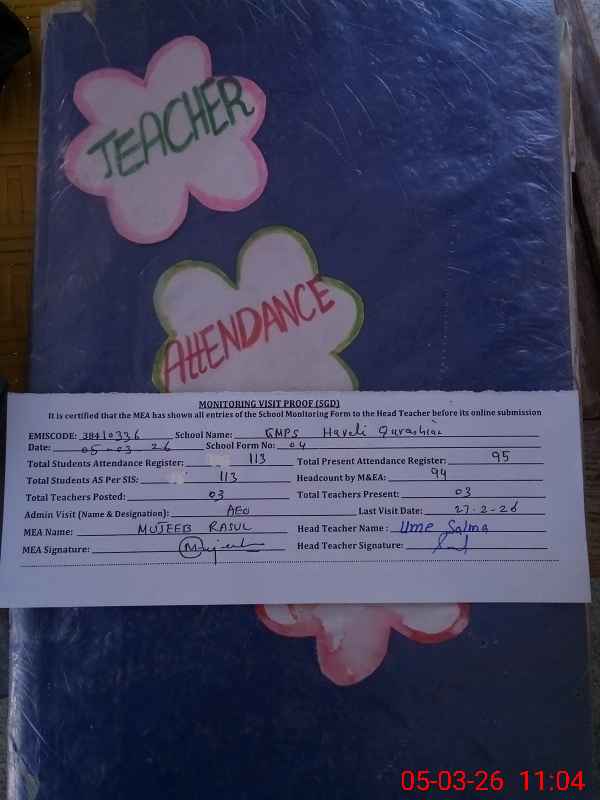 TEACHER
ATTENDANCE
MONITORING VISIT PROOF (SGD)
It is certified that the MEA has shown all entries of the School Monitoring Form to the Head Teacher before its online submission
EMISCODE: 38410336 School Name: GMPS Haveli Qurashian
Date: 05-03-26 School Form No: 04
Total Students Attendance Register: 113 Total Present Attendance Register: 95
Total Students AS Per SIS: 113 Headcount by M&EA: 94
Total Teachers Posted: 03 Total Teachers Present: 03
Admin Visit (Name & Designation): AEO Last Visit Date: 27-2-26
MEA Name: MUJEEB RASUL Head Teacher Name: Ume Salma
MEA Signature: Head Teacher Signature:
05-03-26 11:04